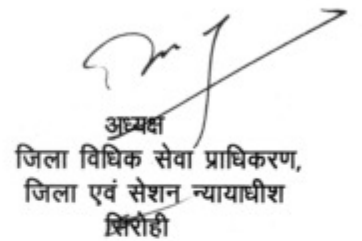 अध्यक्ष
जिला विधिक सेवा प्राधिकरण,
जिला एवं सेशन न्यायाधीश
सिरोही